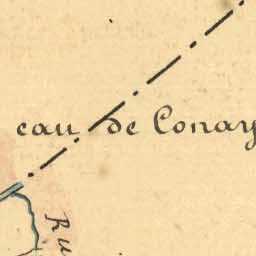 eau de Conay
Ru